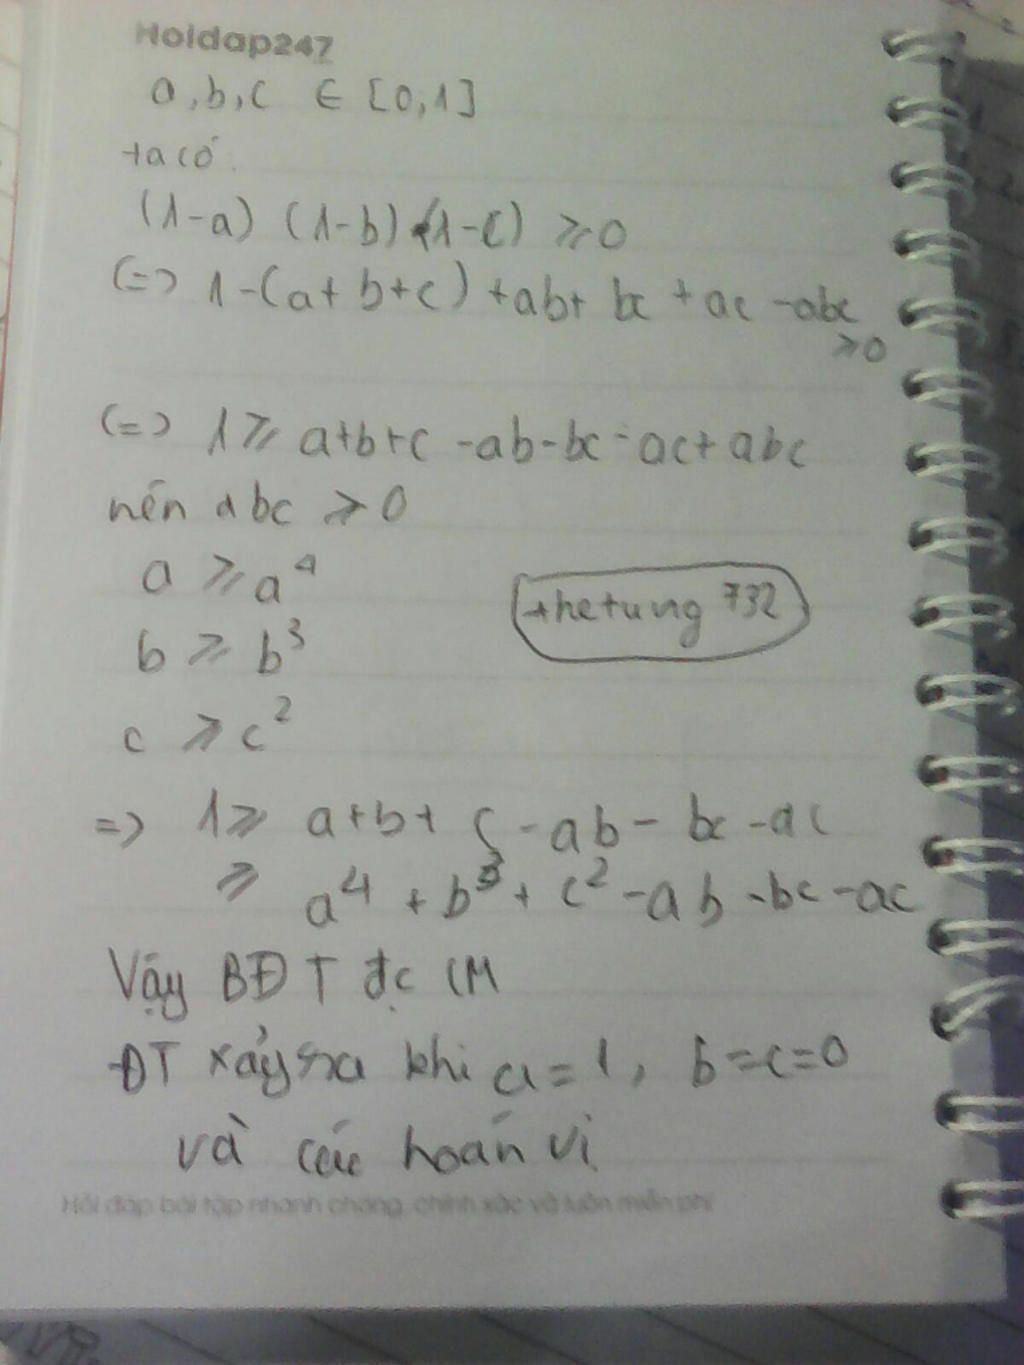 Hoidap247
a,b,c ∈ [0,1]
ta có
(1-a) (1-b) (1-c) ≥0
(=> 1-(a+b+c)+ab+ bc +ac -abc
≥0
(=> 1≥ a+b+c -ab-bc-ac+abc
nên abc ≥ 0
a ≥ a⁴
thetung 732
b ≥ b³
c ≥ c²
=> 1≥ a+b+ c -ab- bc -ac
≥ a⁴ + b³+ c² -ab -bc -ac
Vậy BĐT đc CM
ĐT xảy ra khi a=1, b=c=0
và các hoán vị
Hỏi đáp bài tập nhanh chóng, chính xác và luôn miễn phí